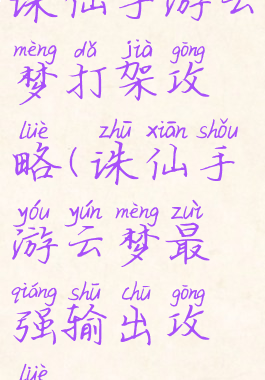 诛仙手游云
mèng dǎ jià gōng
梦打架攻
lüè zhū xiān shǒu
略(诛仙手
yóu yún mèng zuì
游云梦最
qiáng shū chū gōng
强输出攻
lüè